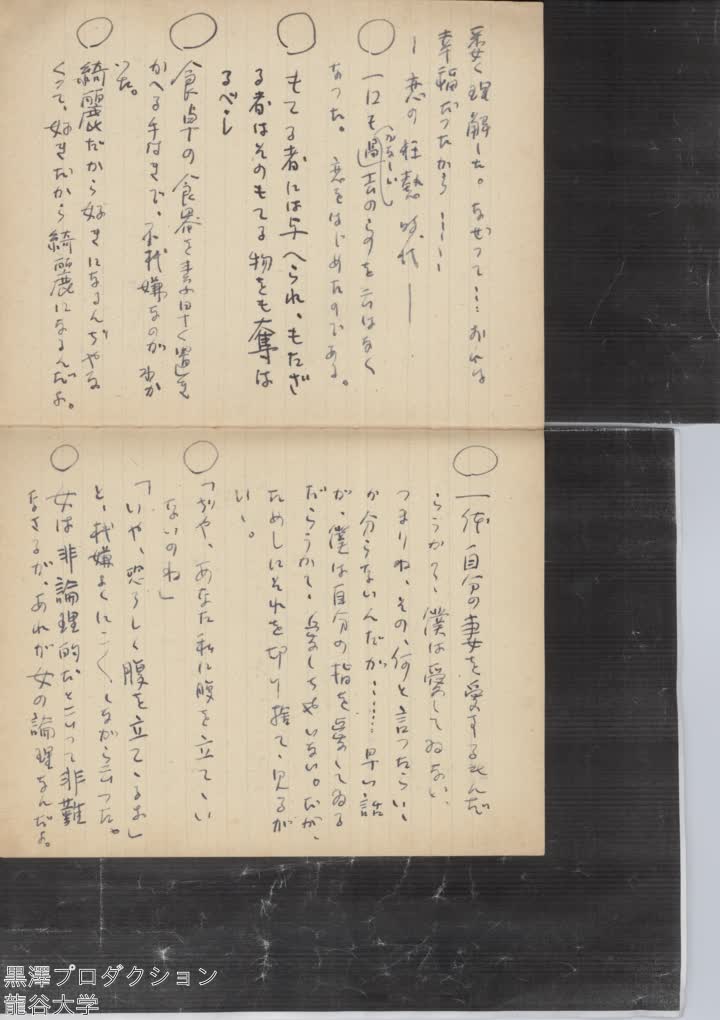 要く理解した。なぜつて…おれは
幸福だつたから……
― 恋の狂熱時代 ―
○ 一口も過去のものを云はなく
なつた。恋をはじめたのである。
○ もてる者には与へられ、もたざ
る者はそのもてる物をも奪は
るべし
○ 食卓の食器を素早く置き
かへる手はきで、不機嫌なのがわか
つた。
○ 綺麗だから好きになるんぢやな
くつて、好きだから綺麗になるんだよ。
○ 一体、自分の妻を愛するもんだ
らうかつて、僕は愛してゐない、
つまりね、その、何と言つたらいゝ
か分らないんだが、……早い話
が、僕は自分の指を愛してゐる
だらうかつて、愛しちやいない。だが、
ためしにそれを切り捨てゝ見るが
いゝ。
○「ぢや、あなた私に腹を立てゝい
ないのね」
「いや、恐ろしく腹を立てゝいるよ」
と、機嫌よくにこ〱しながら云つた。
女は非論理的だと云つて非難
なさるが、あれが女の論理なんだよ。
黒澤プロダクション
龍谷大学